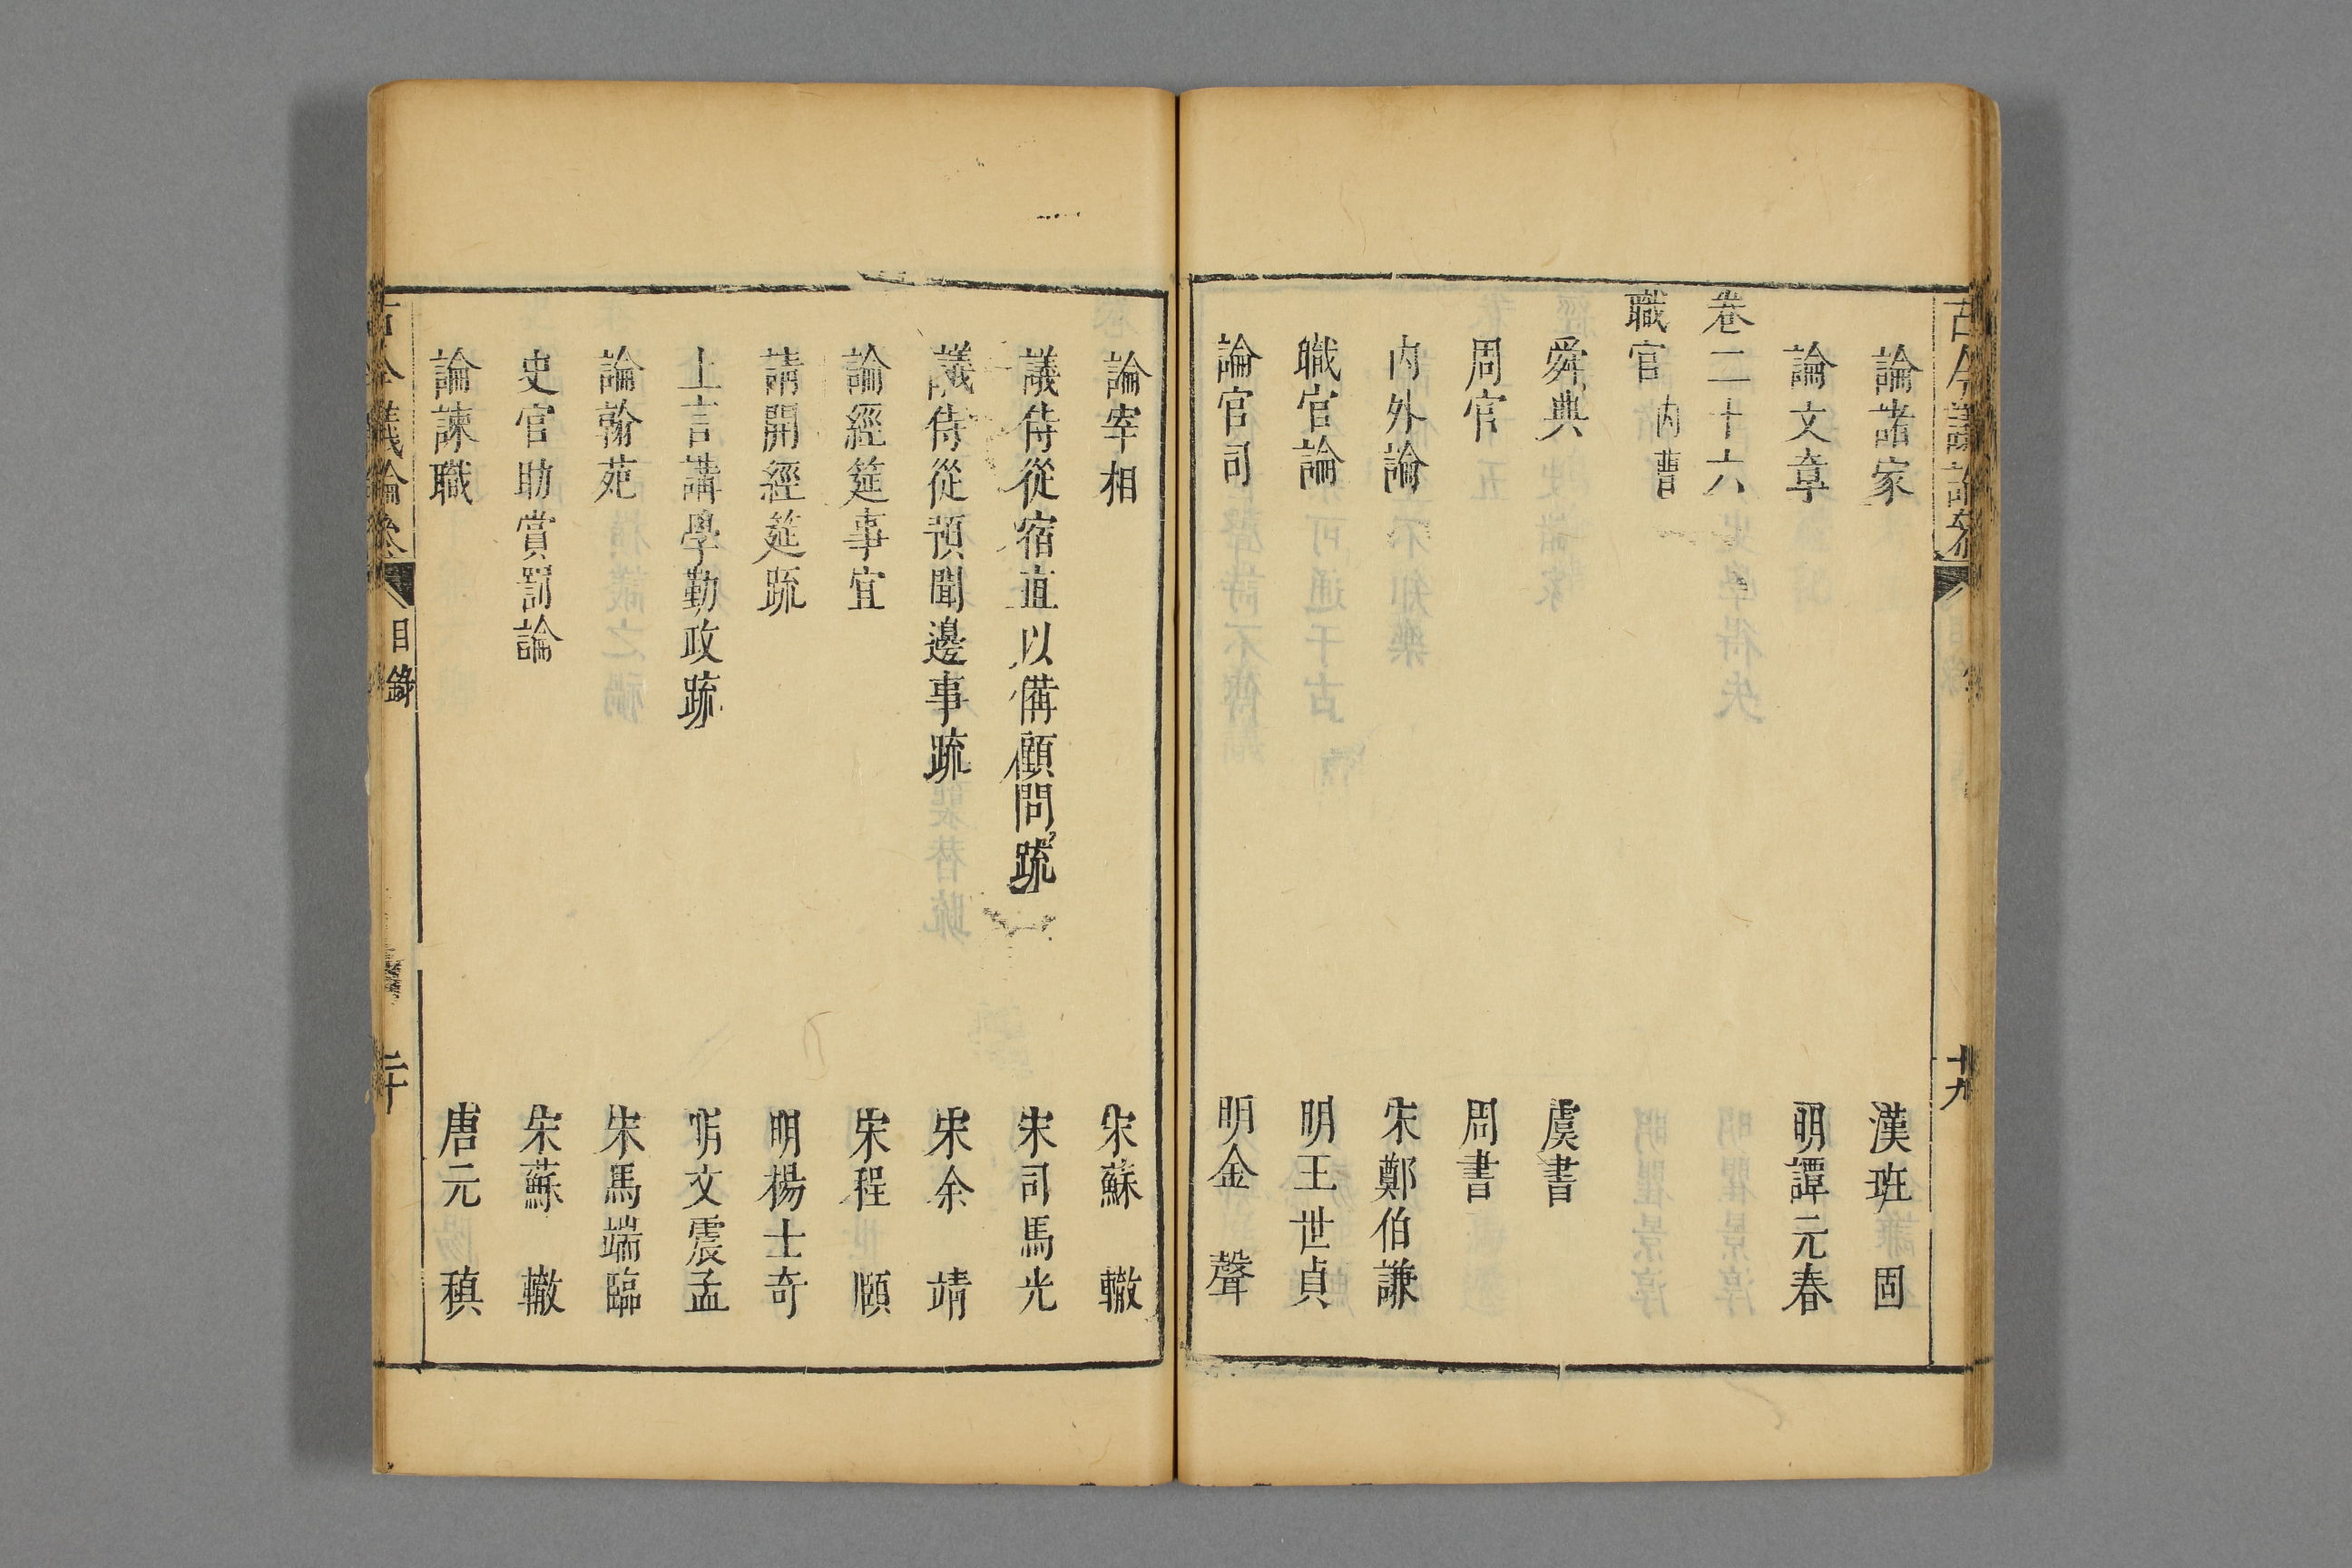 論諸家 漢班固
論文章 明譚元春
卷二十六
職官 内曹
舜典 虞書
周官 周書
内外論 宋鄭伯謙
職官論 明王世貞
論官司 明金聲
論宰相 宋蘇轍
議侍從宿直以備顧問疏 宋司馬光
議侍從預聞邊事疏 宋余靖
論經筵事宜 宋程頤
請開經筵疏 明楊士奇
上言講學勤政疏 明文震孟
論翰苑 宋馬端臨
史官助賞罰論 宋蘇轍
論諫職 唐元稹
古今議論參 目錄 二十